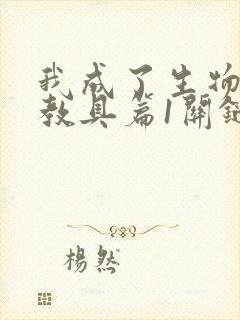 我成了生物
教具篇1關
楊然